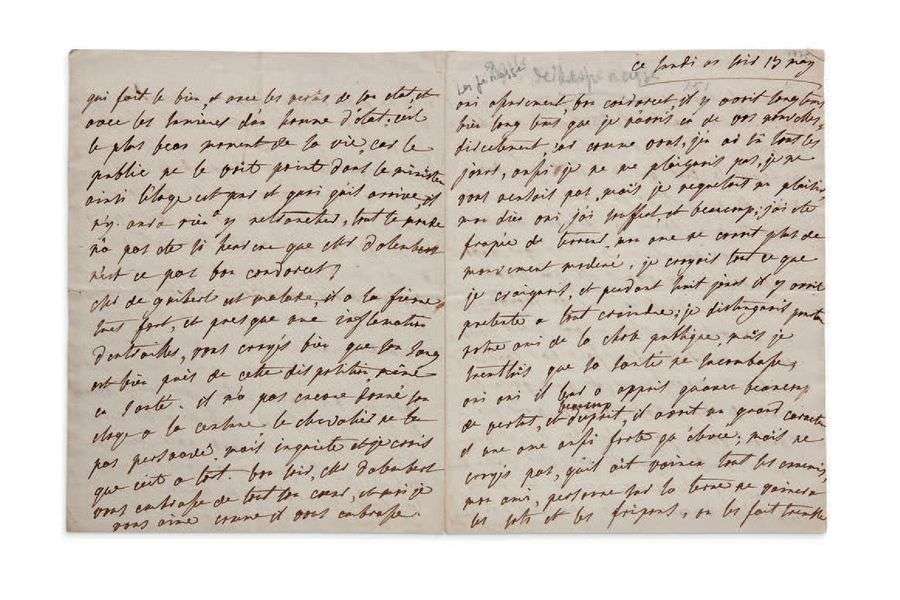 qui fait le bien, et avec les vertus de son etat, et
avec les lumieres d'un homme d'etat. c'est
le plus beau moment de la vie, car le
public ne le voit point dans le ministere
ainsi l'eloge est pur et quoi qu'il arrive, il
n'y aura rien a y retrancher, tout le monde
n'a pas ete si heureux que mr d'alembert
n'est ce pas bon condorcet?
mr de guibert est malade, il a la fievre
tres fort, et presque une inflamation
d'entrailles, vous croyés bien que son sang
est bien près de cette disposition, même
en santé. il n'a pas encore donné son
eloge a la censure le chevalier ne l'a
pas persuadé, mais inquieté et je crois
que c'est a tort. bon soir, mr d'alembert
vous embrasse de tout son coeur, et moi je
vous aime comme il vous embrasse.
ce lundi au soir 15 may
oui assurement, bon condorcet, il y avoit longtems
bien long tems que je n'avois eu de vos nouvelles,
directement car comme vous, j'en ai eu tous les
jours, aussi je ne me plaignois pas, je ne
vous accusois pas, mais je regretois un plaisir
mon dieu oui, j'ai souffert et beaucoup, j'ai eté
frapée de terreur, mon ame ne connoit plus de
mouvement moderé, je croyois tout ce que
je craignois, et pendant huit jours il y avoit
pretexte a tout craindre; je distinguois
notre ami de la chose publique, mais je
tremblois que sa santé ne succombast,
oui oui il a appris qu'avec beaucoup
de vertus, et beaucoup d'esprit, il avoit un grand caractere
et une ame aussi forte qu'elevée; mais ne
croyés pas, qu'il ait vaincu tout les ennemis,
mon ami, personne sur la terre ne vaincra
les sots et les fripons, on les fait trembler